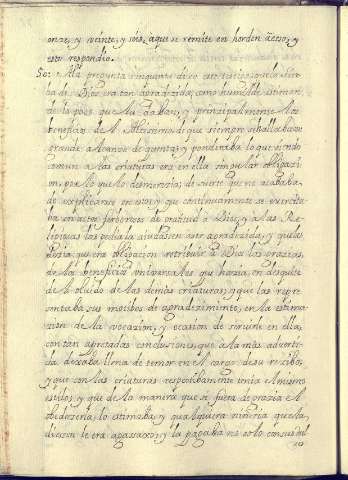 onze, y veinte, y seis, aque se remite en horden a esso, y
esto respondio.
50: A la pregunta cinquenta dixo este testigo, que la Sierba
de Dios era tan agradecida, como humilde estiman
do lo poco que la daban, y principalmente los
beneficios de la Misericordia que siempre se hallaba
grande alcanze de quentas, y ponderaba lo que siendo
comun a las criaturas era en ella singular obligazi
on, por lo que lo desmerezia; de suerte que no acababa,
de explicarse en esto; y que continuamente se exercita
ba en actos ferborosos de gratitud a Dios, y a las Re
ligiosas las pedia la ajudasen a ser agradezida, y que la
hazia, que era obligazion retribuir a Dios las grazias,
de los beneficios universales que hazia, en desquite
de el olvido de las demas criaturas; y que las repre
sentaba sus motibos de agradezimiento, en la estima
zion de la vocazion, y ocasion de servirle en ella,
con tan apretadas conclusiones, que a la mas adverti
da dexaba llena de temor en el cargo de su rezibo,
y que con las criaturas respectibamente tenia el mismo
estilo, y que de la manera que si fuera de grazia el
obedezerla, lo estimaba, y qualquiera niñeria que la
diesen le era agasaxo; y la pagaba no solo con su dul